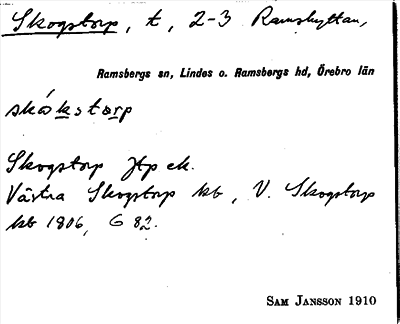 Skogstorp, t, 2-3 Ramshyttan,
Ramsbergs sn, Lindes o. Ramsbergs hd, Örebro län
skókstorp
Skogstorp Jtp ek.
Västra Skogstorp kb, V. Skogstorp
kb 1806, G 82.
SAM JANSSON 1910